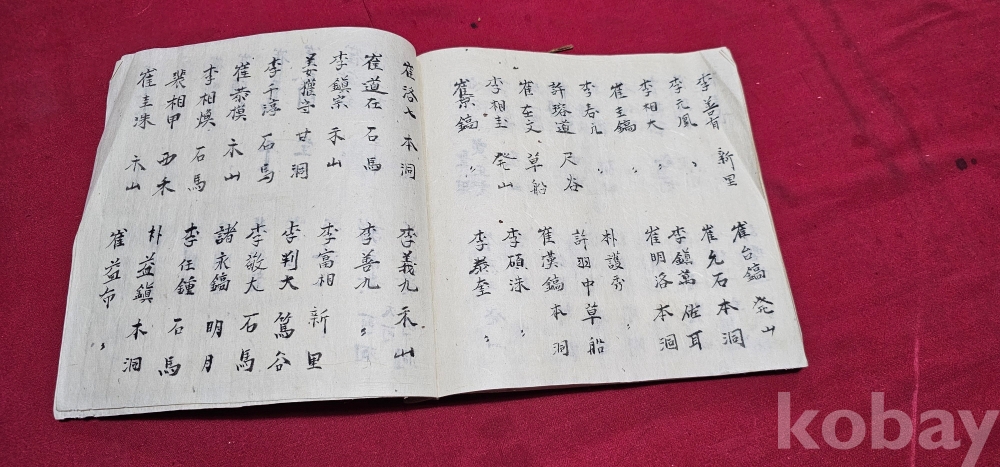 李善有 新里
李元鳳 〃
李相大 〃
崔圭鎬 〃
李春九 〃
許璿道 尺谷
崔在文 草船
李相圭 癸山
崔京鎬 〃
崔台鎬 癸山
崔允石 本洞
李鎭萬 佐耳
崔明洛 本洞
朴護秀 〃
許羽中 草船
崔漢鎬 本洞
李碩洙 〃
李泰奎 〃
崔洛大 本洞
崔道在 石馬
李鎭宗 禾山
姜 守 甘洞
李千淳 石馬
崔恭模 木山
李相煥 石馬
裴相甲 西禾
崔圭洙 木山
李義九 禾山
李善九 〃
李富相 新里
李判大 篤谷
李敬大 石馬
諸永鎬 明月
李任鍾 石馬
朴益鎭 木洞
崔益布 〃
kobay